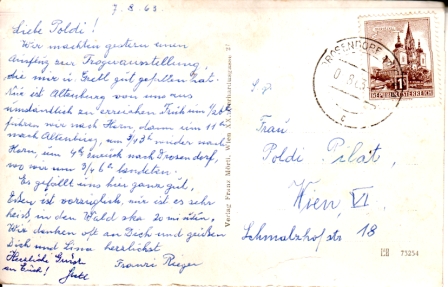 7.8.63
Liebe Poldi!
Wir machten gestern einen
Ausflug zur Trogerausstellung,
die mir u. Gretl gut gefallen hat.
Nur ist Altenburg von uns aus
umständlich zu erreichen. Früh um
fuhren wir nach Horn, dann um 11
nach Altenburg, um wieder nach
Horn, um 4 zurück nach Drosendorf,
wo wir um landeten.
Es gefällt uns hier ganz gut,
Essen ist vorzüglich, nur ist es sehr
heiß, in den Wald 20 Minuten.
Wir denken oft an Dich und grüßen
Dich und Lina herzlichst
Franzi Rieger
Herzliche Grüße
an Euch!
Verlag Franz Mörtl, Wien XX.
S. P.
DROSENDORF
c
REPUBLIK ÖSTERREICH
Frau
Poldi Pilat,
Wien, VI.
Schmalzhofstr 18
75254